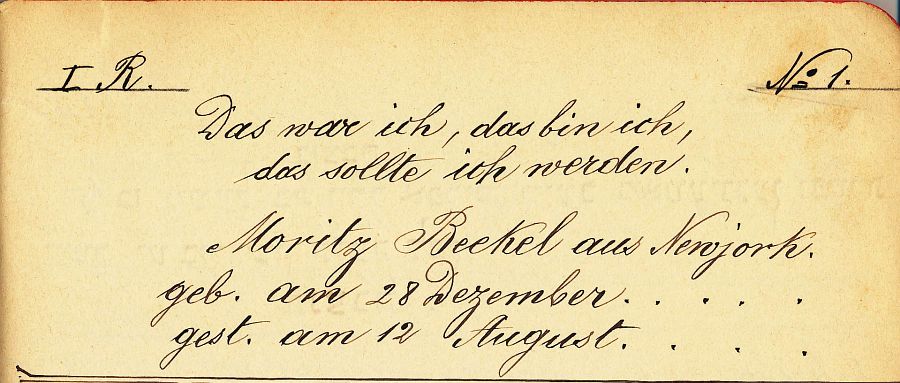 I R. No 1.
Das war ich, das bin ich,
das sollte ich werden.
Moritz Beckel aus Newjork.
geb. am 28 Dezember. . . . .
gest. am 12 August. . . . .